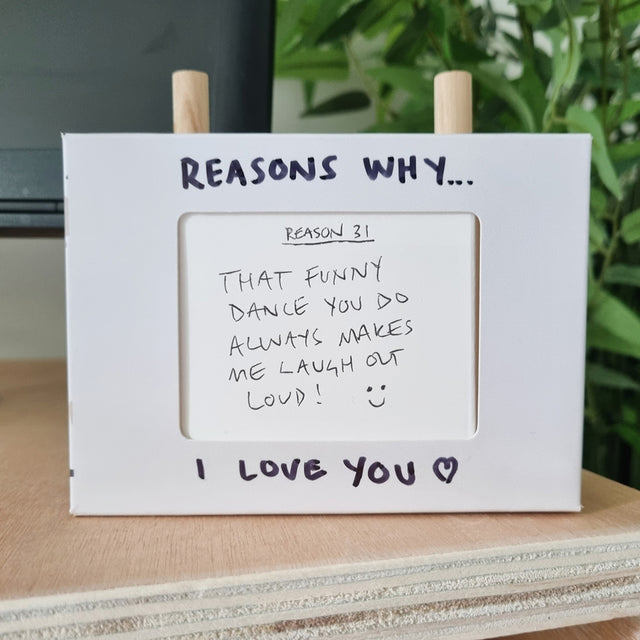 REASONS WHY...
REASON 31
THAT FUNNY
DANCE YOU DO
ALWAYS MAKES
ME LAUGH OUT
LOUD! :)
I LOVE YOU ♡